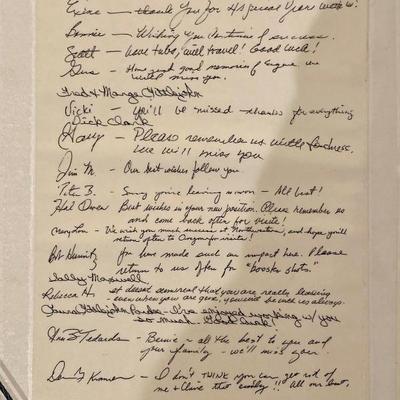 thank you for
Bonnie — Wishing you of success.
Scott — Have tube, will travel! Good luck!
Gus — Have good memories of Eugene we
will miss you.
Fred & Marge Littlejohn
Vicki — You'll be missed — thanks for everything
Dick Clark
Gary — Please remember us with fondness.
We will miss you
Jim M. — Our best wishes follow you.
Peter B. — Sorry you're leaving so soon — All best!
Hal Owen Best wishes in your new position. Please remember us
and come back often for visits!
Mary Lou — We wish you much success at Northwestern, and hope you'll
return often to Oregon for visits!
Bob Hurwitz You have made such an impact here. Please
return to us often for "booster shots."
Sally Maxwell
Rebecca It doesn't seem real that you are really leaving
when you are gone, you will be with us always.
Laura Littlejohn — I've enjoyed working w/ you
so much. Good luck!
Tedards — Bernie — all the best to you and
your family — we'll miss you.
Kramer — I don't THINK you can get rid of
me & Claire that easily!! All our best,